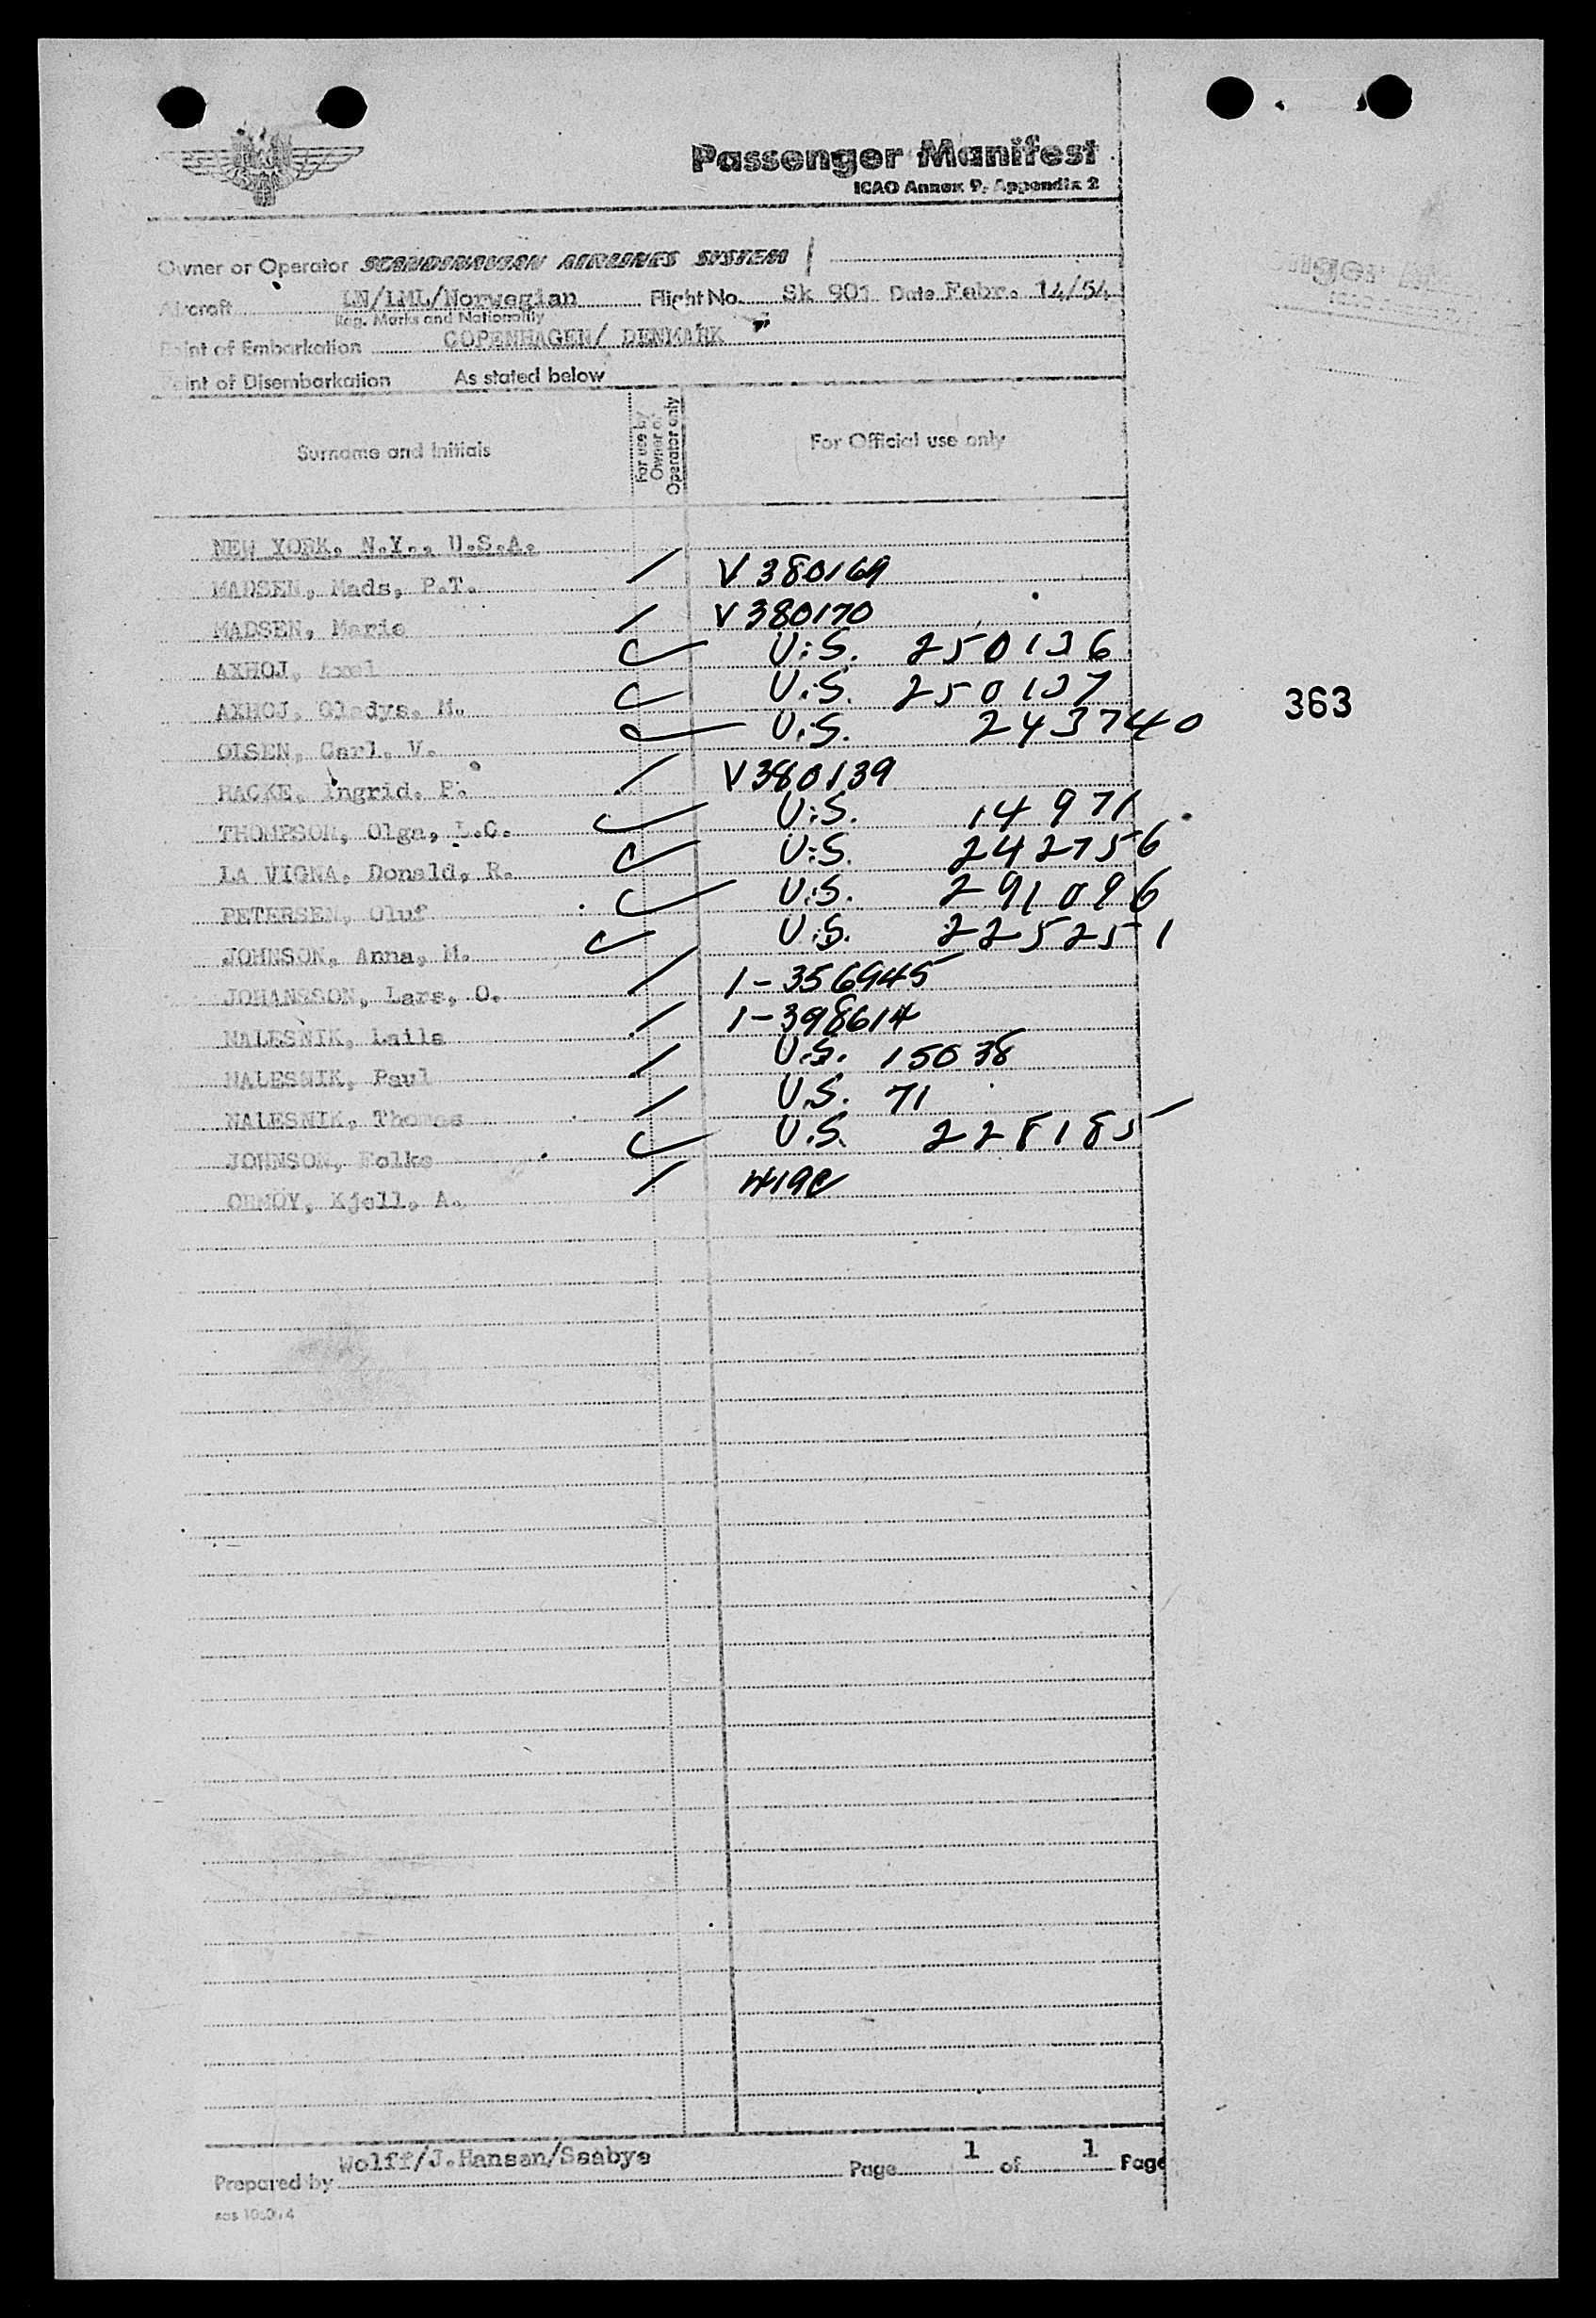 Passenger Manifest
ICAO Annex 9, Appendix 2
Owner or Operator SCANDINAVIAN AIRLINES SYSTEM
Aircraft LN/LML/Norwegian Flight No. Sk 901 Date Febr. 14/54
Reg. Marks and Nationality
Point of Embarkation COPENHAGEN/ DENMARK
Point of Disembarkation As stated below
Surname and Initials For use by Owner or Operator only For Official use only
NEW YORK, N.Y., U.S.A.
MADSEN, Mads, P.T. V 380169
MADSEN, Marie V 380170
AXHOJ, Axel U.S. 250136
AXHOJ, Gladys, M. U.S. 250137
363
OLSEN, Carl, V. U.S. 243740
HACKE, Ingrid, P. V 380139
THOMPSON, Olga, L.C. U.S. 14971
LA VIGNA, Donald, R. U.S. 242756
PETERSEN, Oluf U.S. 291096
JOHNSON, Anna, M. U.S. 225251
JOHANSSON, Lars, O. 1-356945
NALESNIK, Laila 1-398614
NALESNIK, Paul U.S. 15038
NALESNIK, Thomas U.S. 71
JOHNSON, Folke U.S. 228185
ORMOY, Kjell, A.
Prepared by Wolff/J.Hansen/Saabye Page 1 of 1 Page